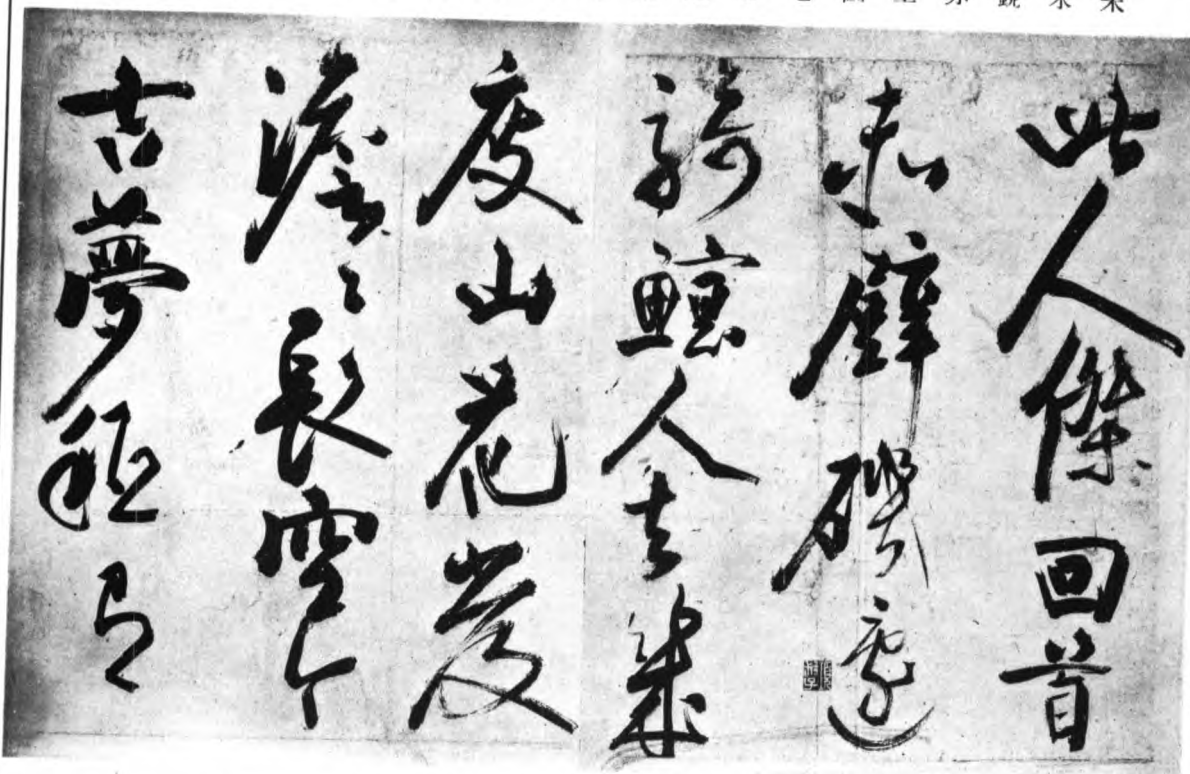 此人傑回首
赤壁磯邊
騎鯨人去幾
度山花發
澹〻長空今
古夢秪有